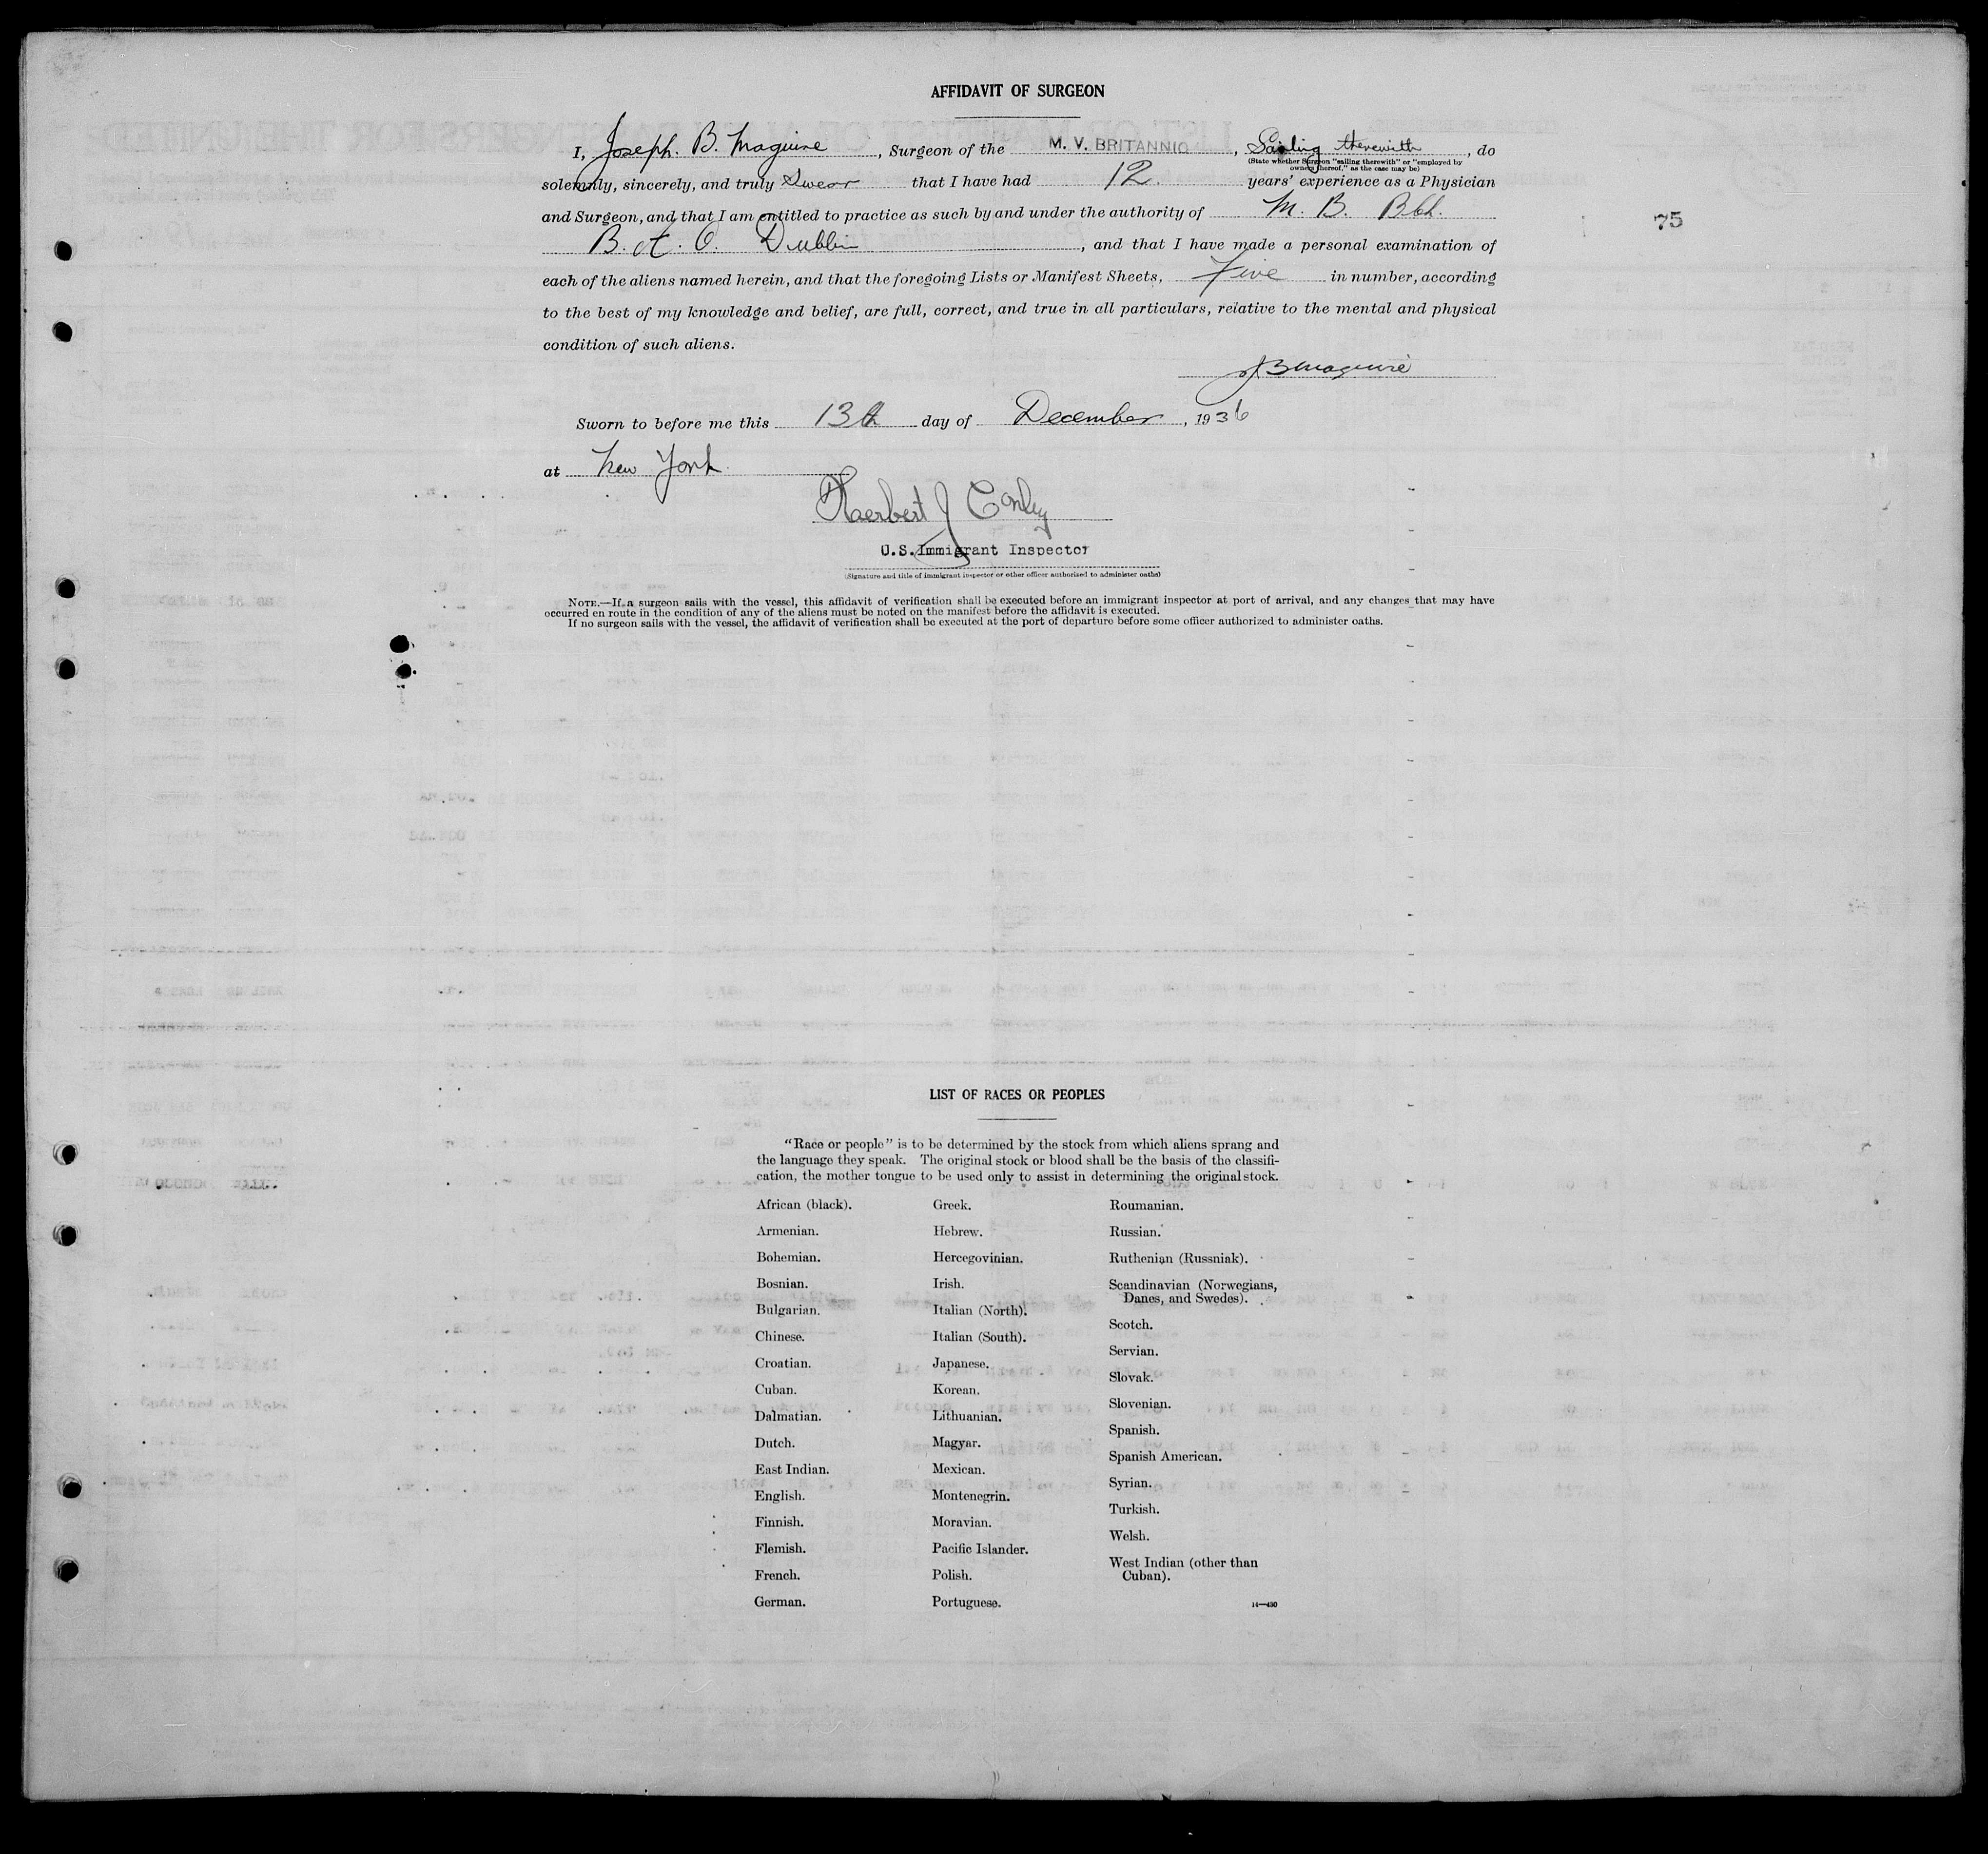 AFFIDAVIT OF SURGEON
I, Joseph. B. Maguire, Surgeon of the M. V. BRITANNIC, Sailing therewith, do
(State whether Surgeon "sailing therewith" or "employed by
owners thereof," as the case may be)
solemnly, sincerely, and truly Swear that I have had 12. years' experience as a Physician
and Surgeon, and that I am entitled to practice as such by and under the authority of M. B. Bch.
75
B. A. O. Dublin, and that I have made a personal examination of
each of the aliens named herein, and that the foregoing Lists or Manifest Sheets, Five in number, according
to the best of my knowledge and belief, are full, correct, and true in all particulars, relative to the mental and physical
condition of such aliens.
JB Maguire
Sworn to before me this 13th day of December, 1936
at New York.
Herbert J Conley
U.S. Immigrant Inspector
(Signature and title of immigrant inspector or other officer authorized to administer oaths)
NOTE.—If a surgeon sails with the vessel, this affidavit of verification shall be executed before an immigrant inspector at port of arrival, and any changes that may have
occurred en route in the condition of any of the aliens must be noted on the manifest before the affidavit is executed.
If no surgeon sails with the vessel, the affidavit of verification shall be executed at the port of departure before some officer authorized to administer oaths.
LIST OF RACES OR PEOPLES
"Race or people" is to be determined by the stock from which aliens sprang and
the language they speak. The original stock or blood shall be the basis of the classifi-
cation, the mother tongue to be used only to assist in determining the original stock.
African (black).
Armenian.
Bohemian.
Bosnian.
Bulgarian.
Chinese.
Croatian.
Cuban.
Dalmatian.
Dutch.
East Indian.
English.
Finnish.
Flemish.
French.
German.
Greek.
Hebrew.
Hercegovinian.
Irish.
Italian (North).
Italian (South).
Japanese.
Korean.
Lithuanian.
Magyar.
Mexican.
Montenegrin.
Moravian.
Pacific Islander.
Polish.
Portuguese.
Roumanian.
Russian.
Ruthenian (Russniak).
Scandinavian (Norwegians,
Danes, and Swedes).
Scotch.
Servian.
Slovak.
Slovenian.
Spanish.
Spanish American.
Syrian.
Turkish.
Welsh.
West Indian (other than
Cuban).
14—430